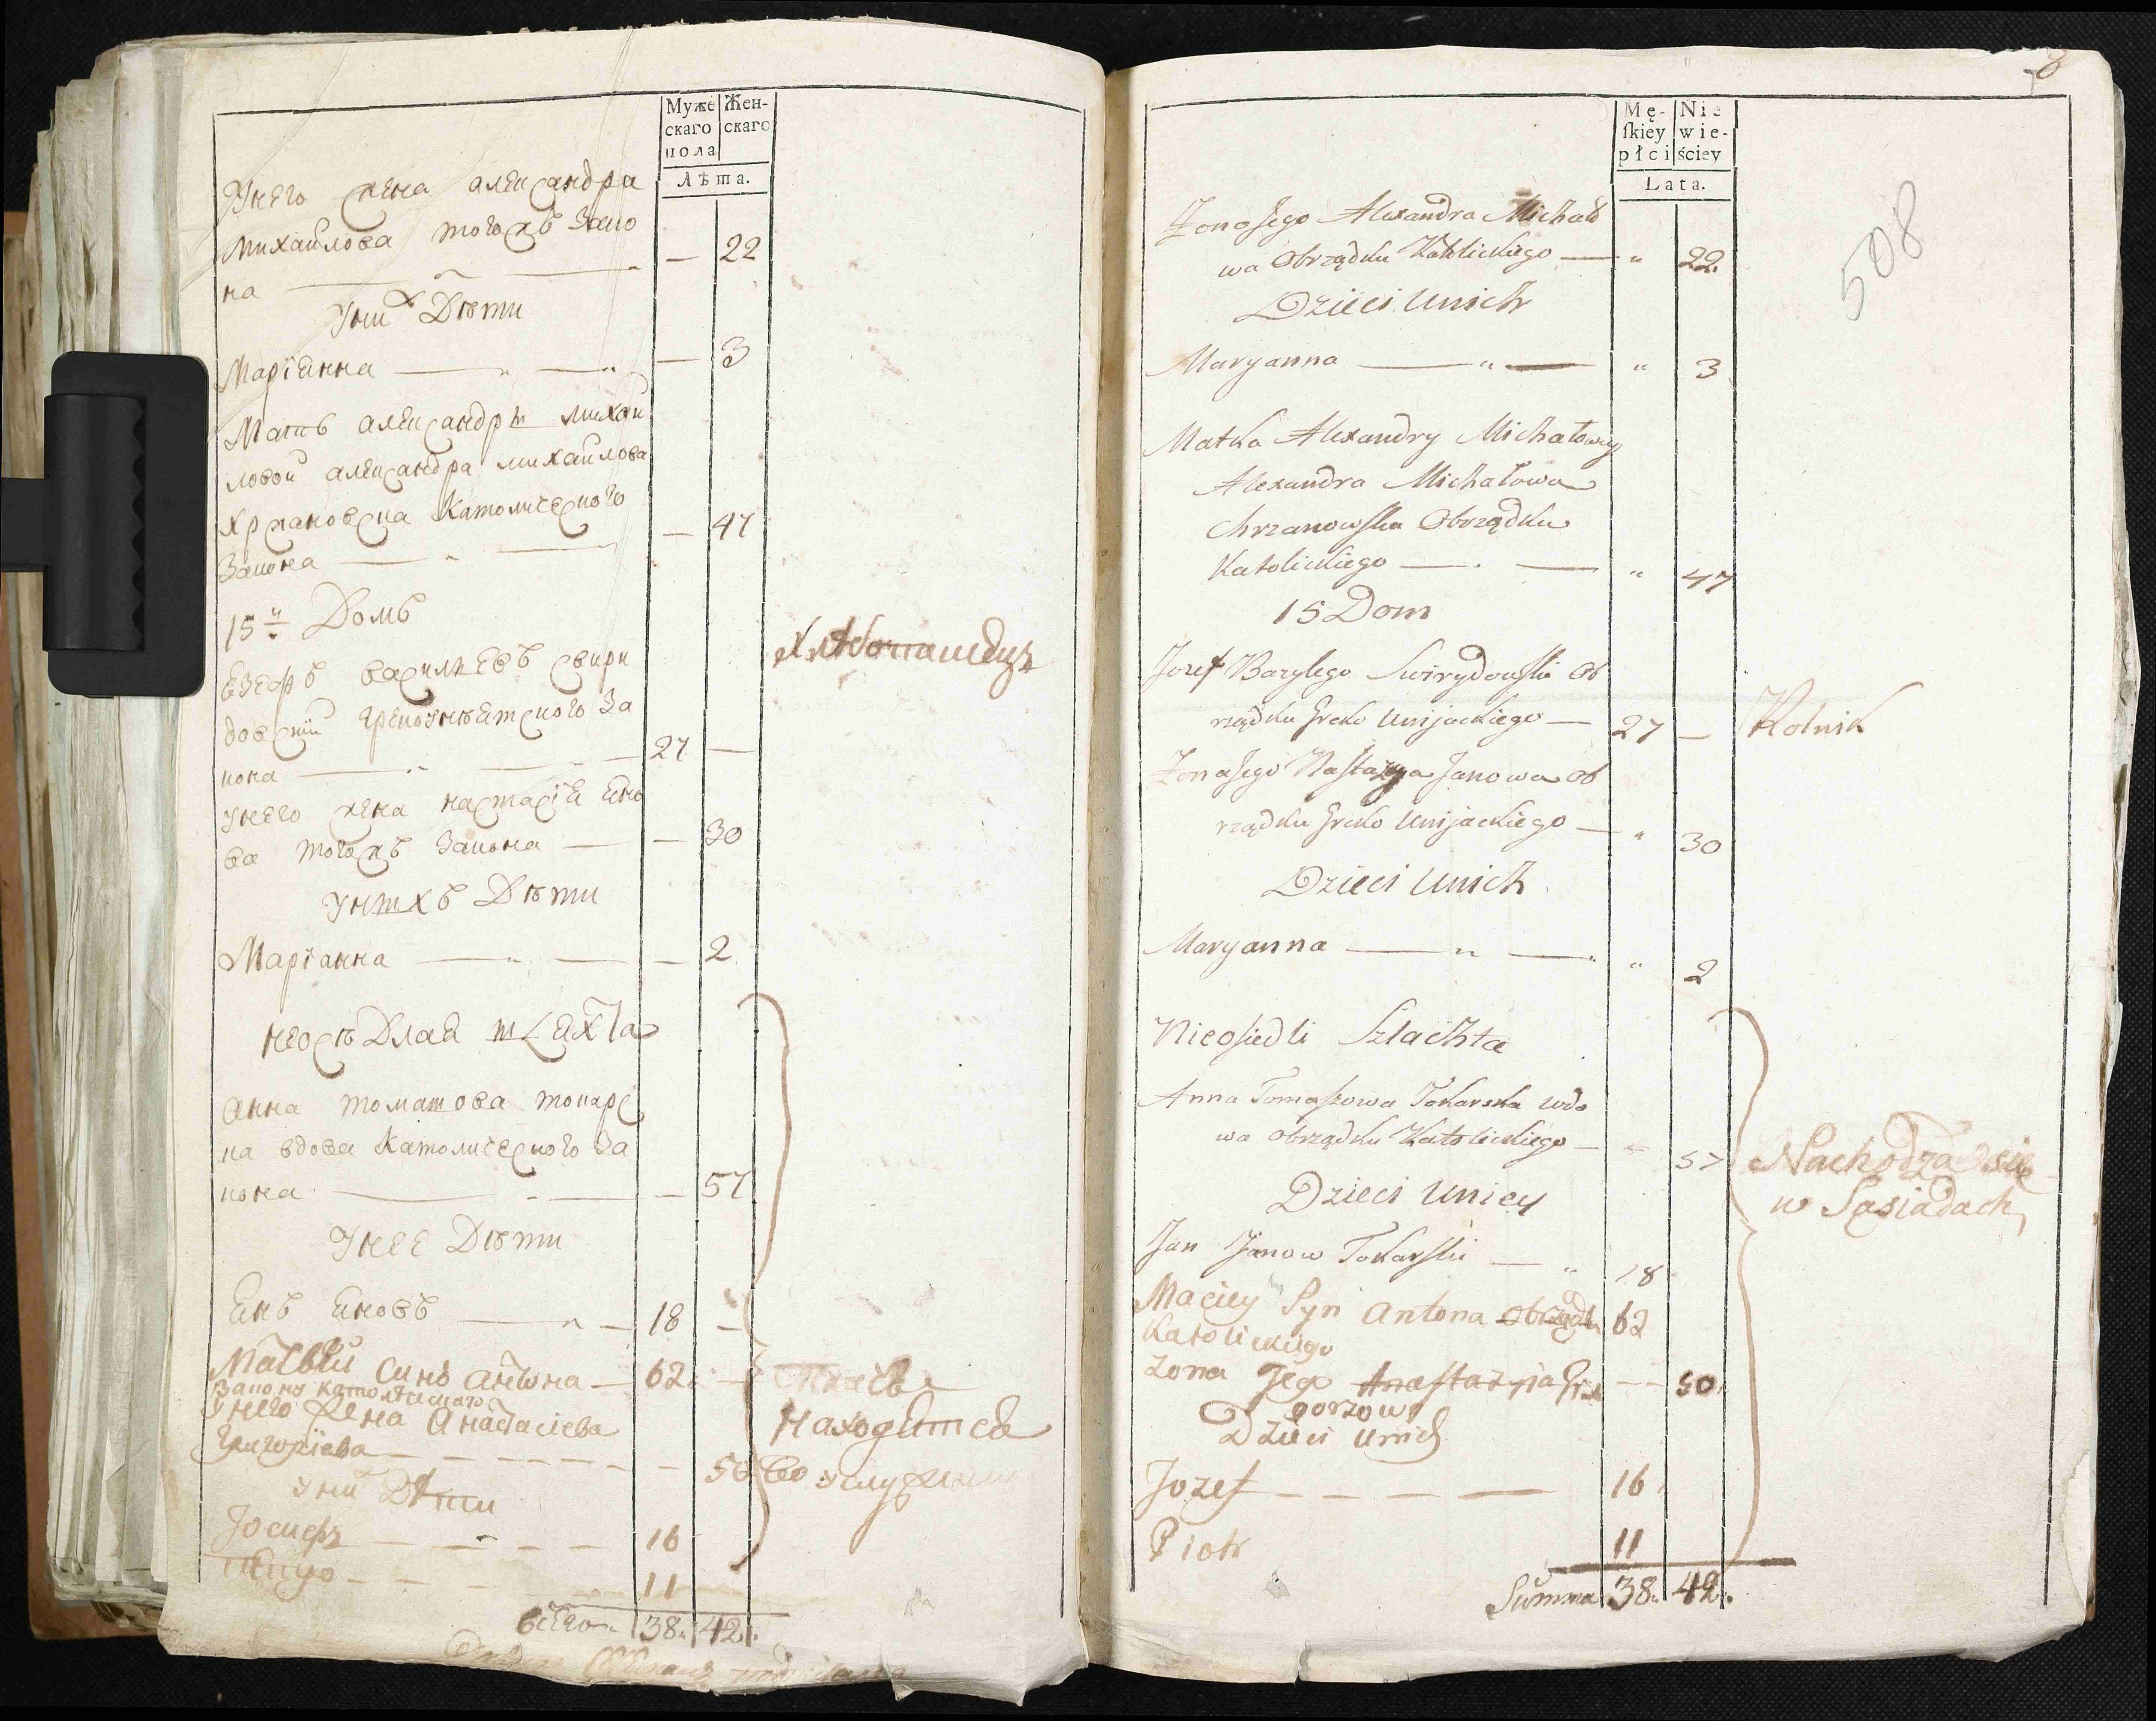 Муже Жен-
скаго скаго
пола
Лѣта.
Унего жена александра
михайлова тогожъ зако
на — 22
Уних Дѣти
Маріянна — 3
Мать александры михай
ловой александра михайлова
хржановска католического
закона — 47
15й Домъ
Езефъ василievъ свири
довскій грекоуніятского за
кона 27 —
унего жена настасія яно
ва тогожъ закона — 30
Унихъ Дѣти
Маріанна — 2
неосѣдлая шляхта
анна томашова токарс
ка вдова католического за
кона — 57
Унее Дѣти
Янъ Яновъ — 18 —
Матвѣй синъ антона — 62
закону католическаго
Унего жена анастасіева
Григоріева — 50
Уних Дѣти
Іосифъ — 16
11
всего 38. 42.
Хлѣбопашецъ
находятся
во
Mę- Nie
skiey wie-
płci ściey
Lata.
8
508
Zona Jego Alexandra Michało
wa Obrządku Katolickiego — " 22.
Dzieci Unich
Maryanna — " — " 3
Matka Alexandry Michałowey
Alexandra Michałowa
Chrzanowska Obrządku
Katolickiego — " 47
15 Dom
Jozef Bazylego Swirydowski Ob
rządku Greko Unijackiego — 27 — Rolnik
Zona Jego Nastazya Janowa Ob
rządku Greko Unijackiego — " 30
Dzieci Unich
Maryanna — " — " 2
Nieosiedli Szlachta
Anna Tomaszowa Tokarska wdo
wa obrządku Katolickiego — 57
Dzieci Uniey
Jan Janow Tokarski — " 18
Maciey Syn Antona obrządku 62
Katolickiego
zona Jego Anastazyia Gre — 50
gorzow
Dzieci Unich
Jozef — 16
Piotr 11
Summa 38. 42.
Nachodzą sie
w Sąsiadach